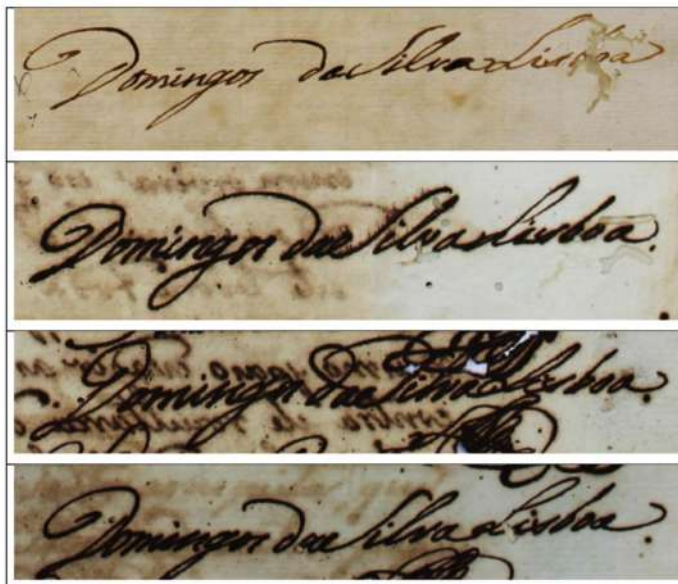 Domingos da Silva Lisboa
Domingos da Silva Lisboa.
Domingos da Silva Lisboa.
Domingos da Silva Lisboa